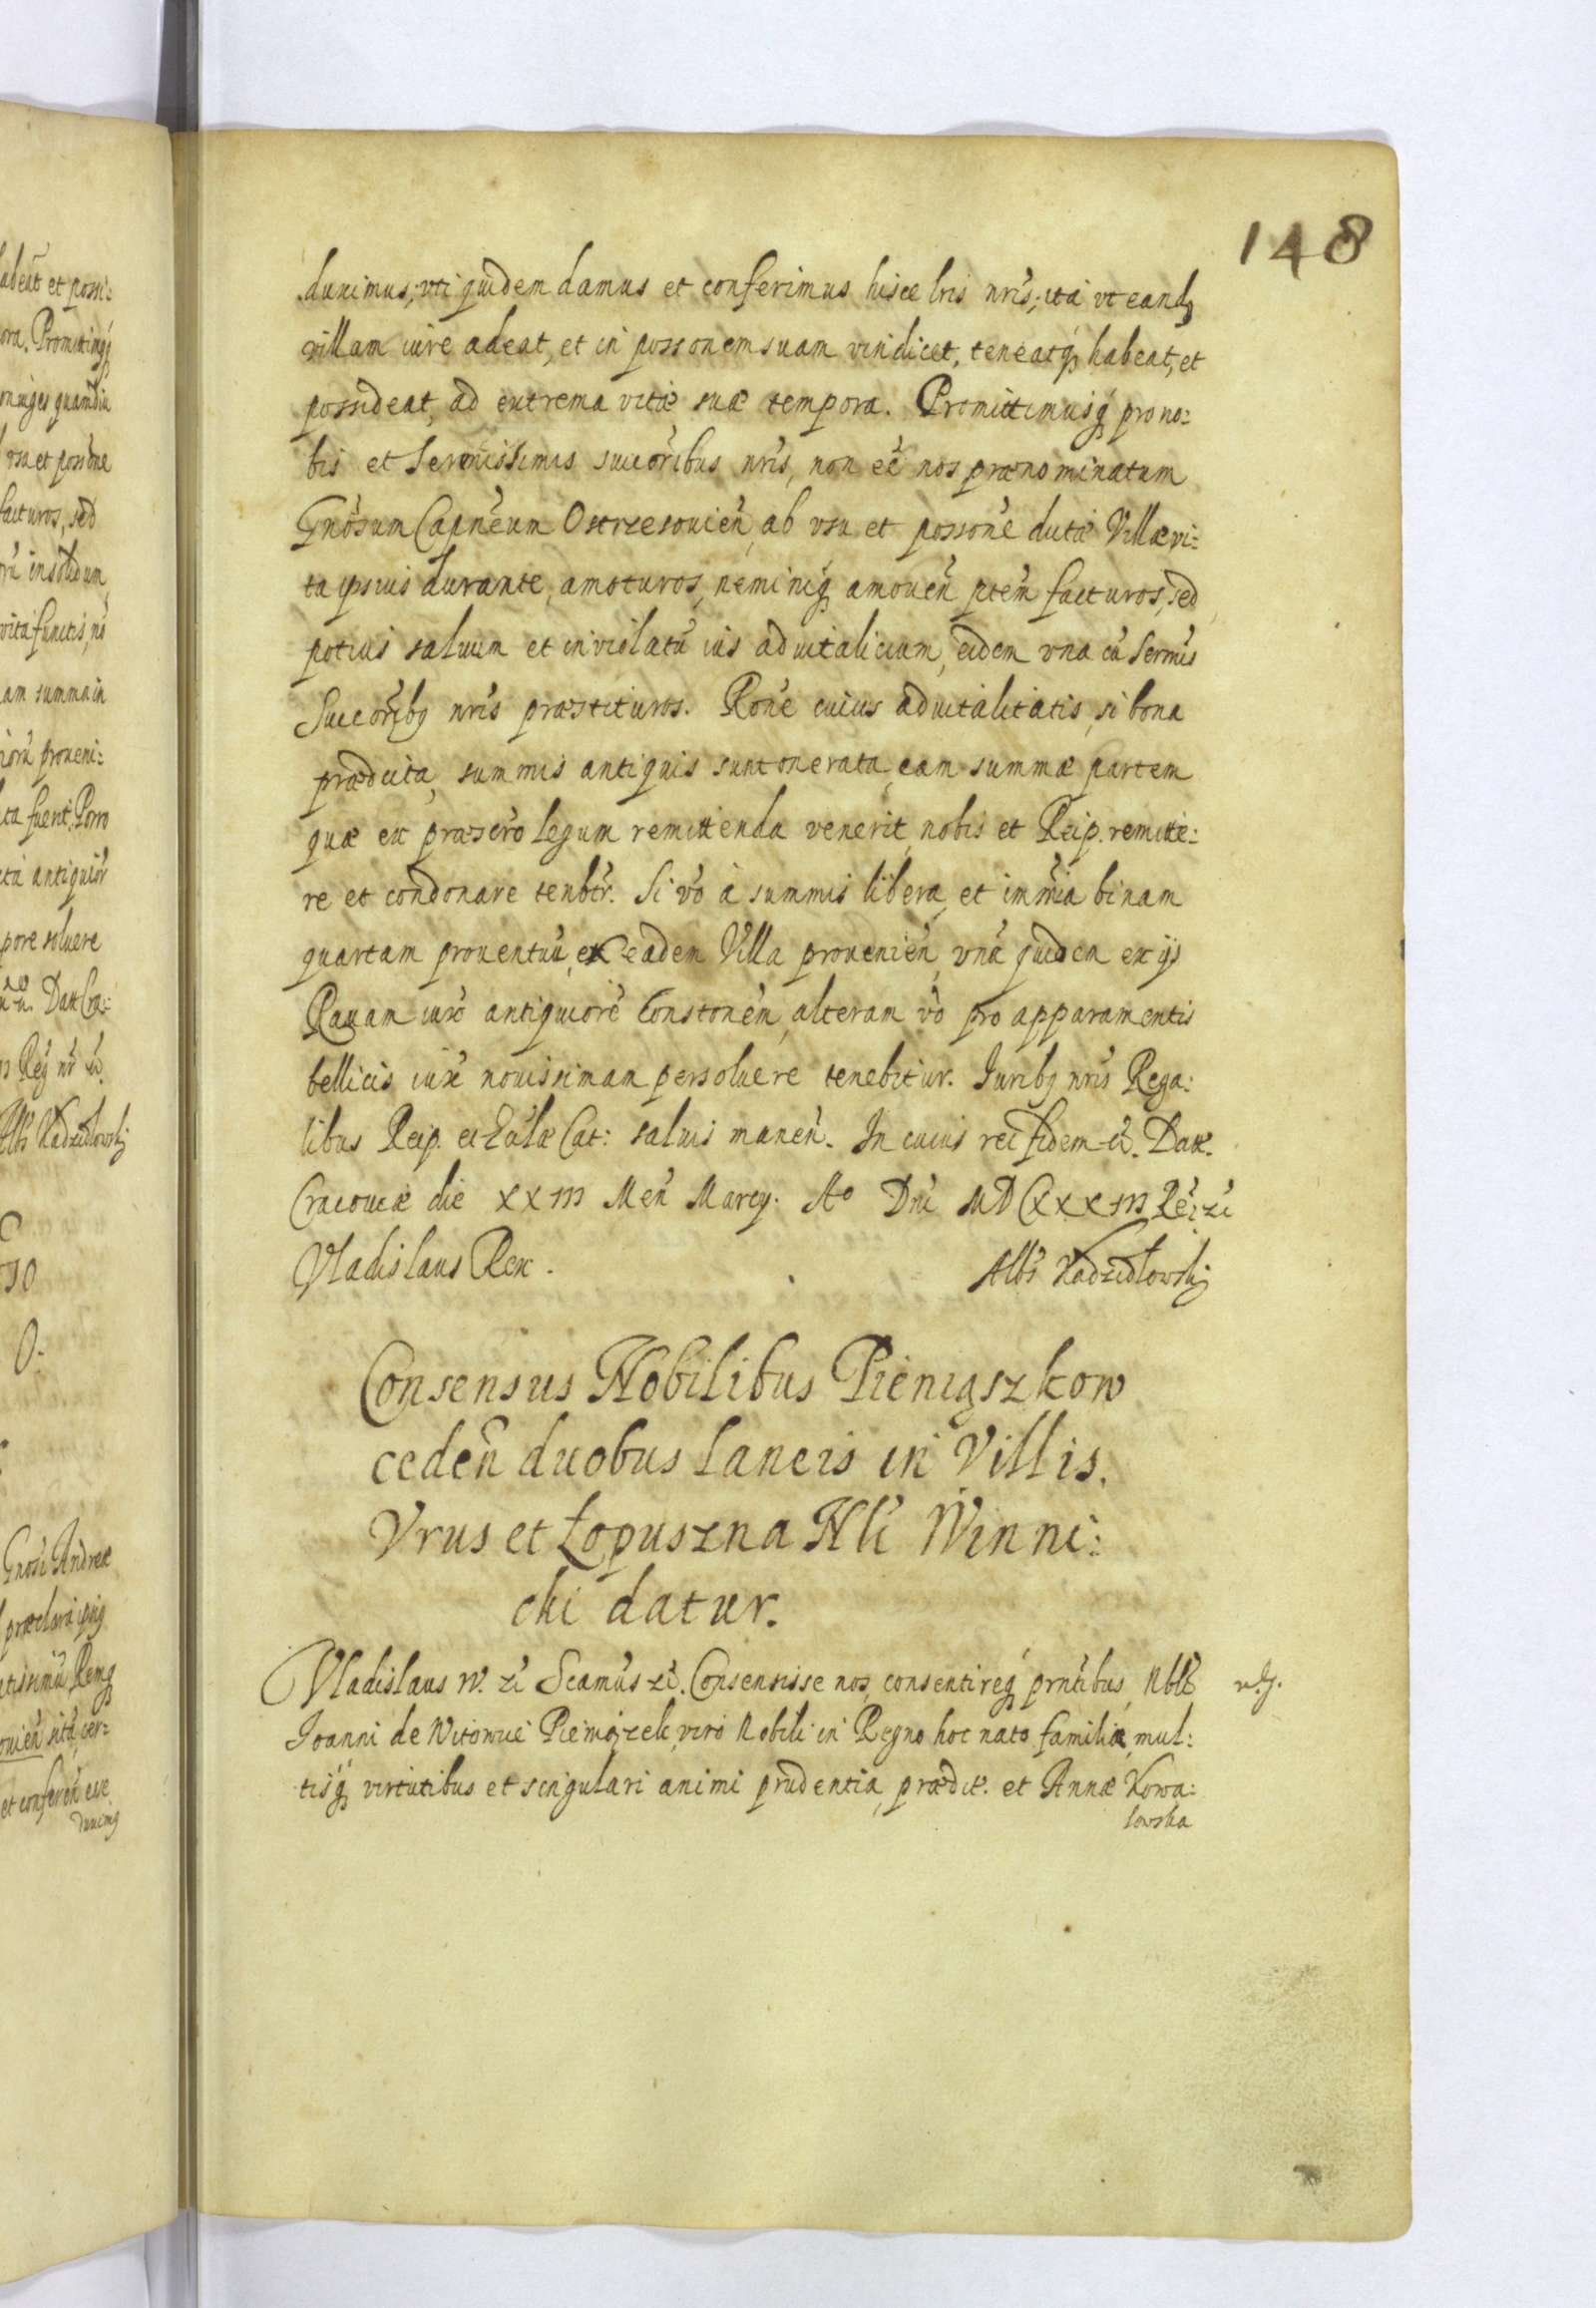 148
duximus; vti quidem damus et conferimus hisce lris nris; ita vt eandẽ
villam iure adeat, et in possonem suam vindicet, teneatq́ habeat, et
possideat, ad extrema vitæ suæ tempora. Promittimusq́ pro no:
bis et Serenissimis succoribus nris, non eẽ nos prænominatum
Gnosum Capneum Ostrzesouien̄ ab vsu et possone dictæ Villæ vi:
ta ipsius durante, amoturos, neminiq́ amouen̄ ptem facturos, sed
potius saluum et inviolatũ ius aduitalicium, eidem vna cũ Sermis
Succoribꝫ nris præstituros. Rone cuius aduitalitatis, si bona
prædicta, summis antiquis sunt onerata eam summæ partem
quæ ex præscro legum remittenda venerit nobis et Reip. remitte:
re et condonare tenbtr. Si vo à summis libera, et immia binam
quartam prouentuũ, ex eadem Villa prouenien̄, vnã quidem ex ijs
Rauam iuxo antiquiore Constonem, alteram vo pro apparamentis
bellicis iuxe nouissimam persoluere tenebitur. Juribꝫ nris Rega:
libus Reip. et Eccliæ Cat: saluis manen̄. In cuius rei fidem &. Datt.
Cracouiæ die XXIII Men̄ Marcij. Ao Dni MDCXXXIII Rei: &
Vladislaus Rex.
Albs Kadzidłowskj
Consensus Nobilibus Pieniąszkow
ceden̄ duobus Laneis in Villis.
Vrus et Łopuszna Nli Winni:
cki datur.
Vladislaus IV. & Seamus &. Consensisse nos, consentireq́ prntibus, Nbll
Joanni de Witowice Pieniązek, viro Nobili in Regno hoc nato familiæ, mul:
tisq́ virtutibus et singulari animi prudentia prædit. et Annæ Kowa:
lowska